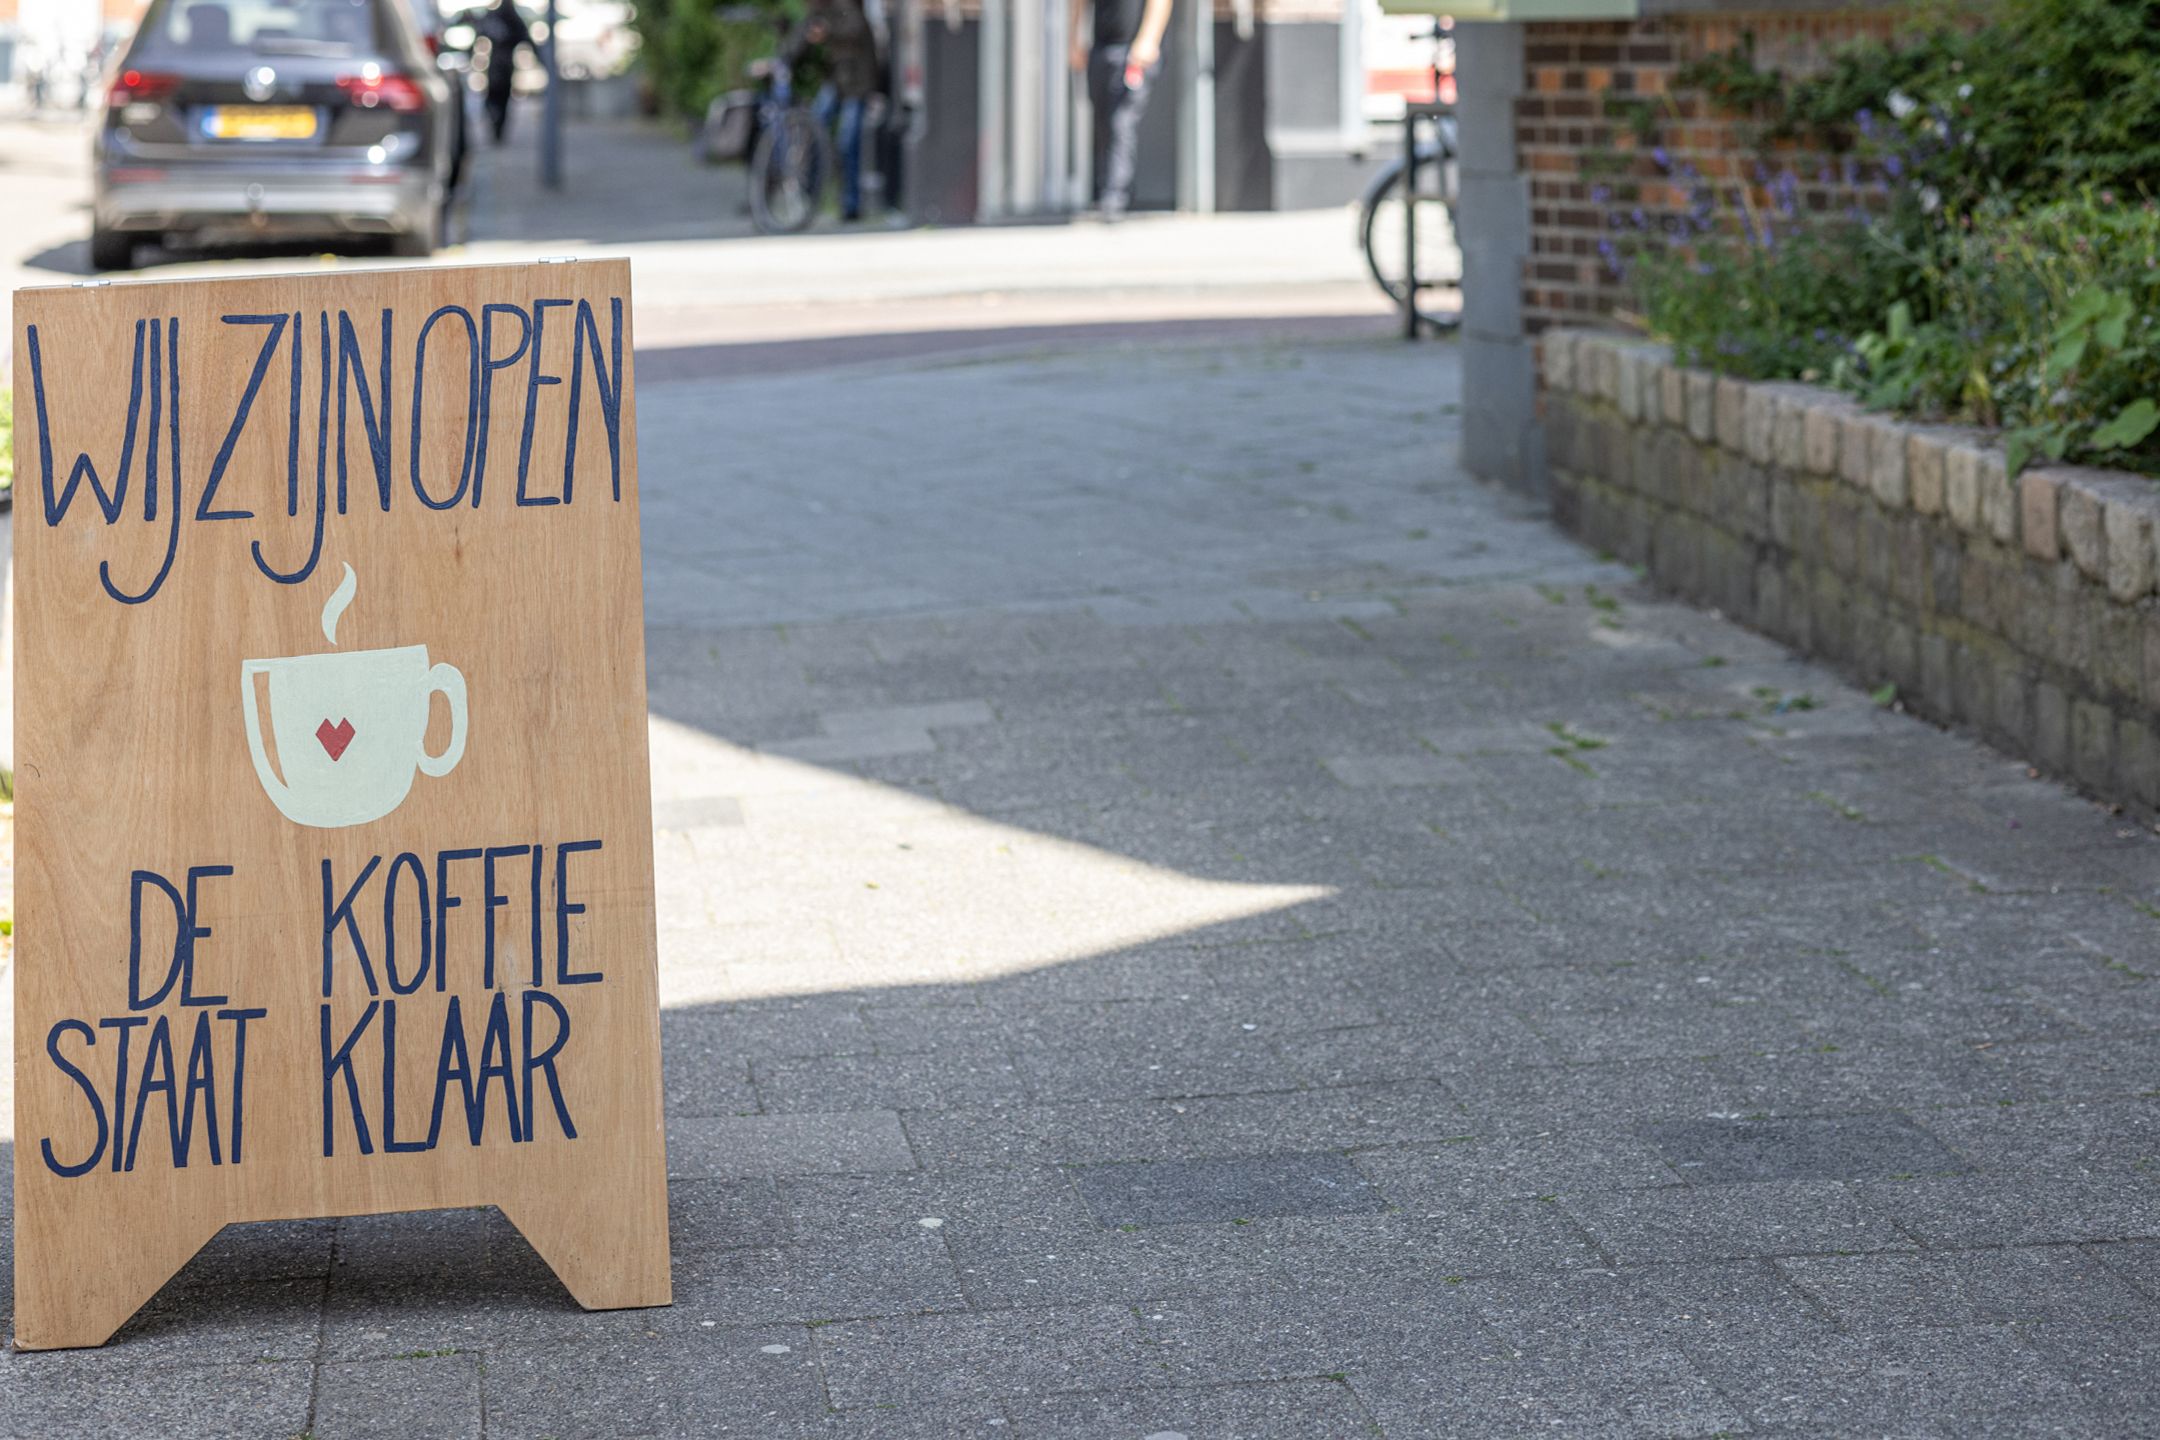 WIJ ZIJN OPEN
DE KOFFIE
STAAT KLAAR